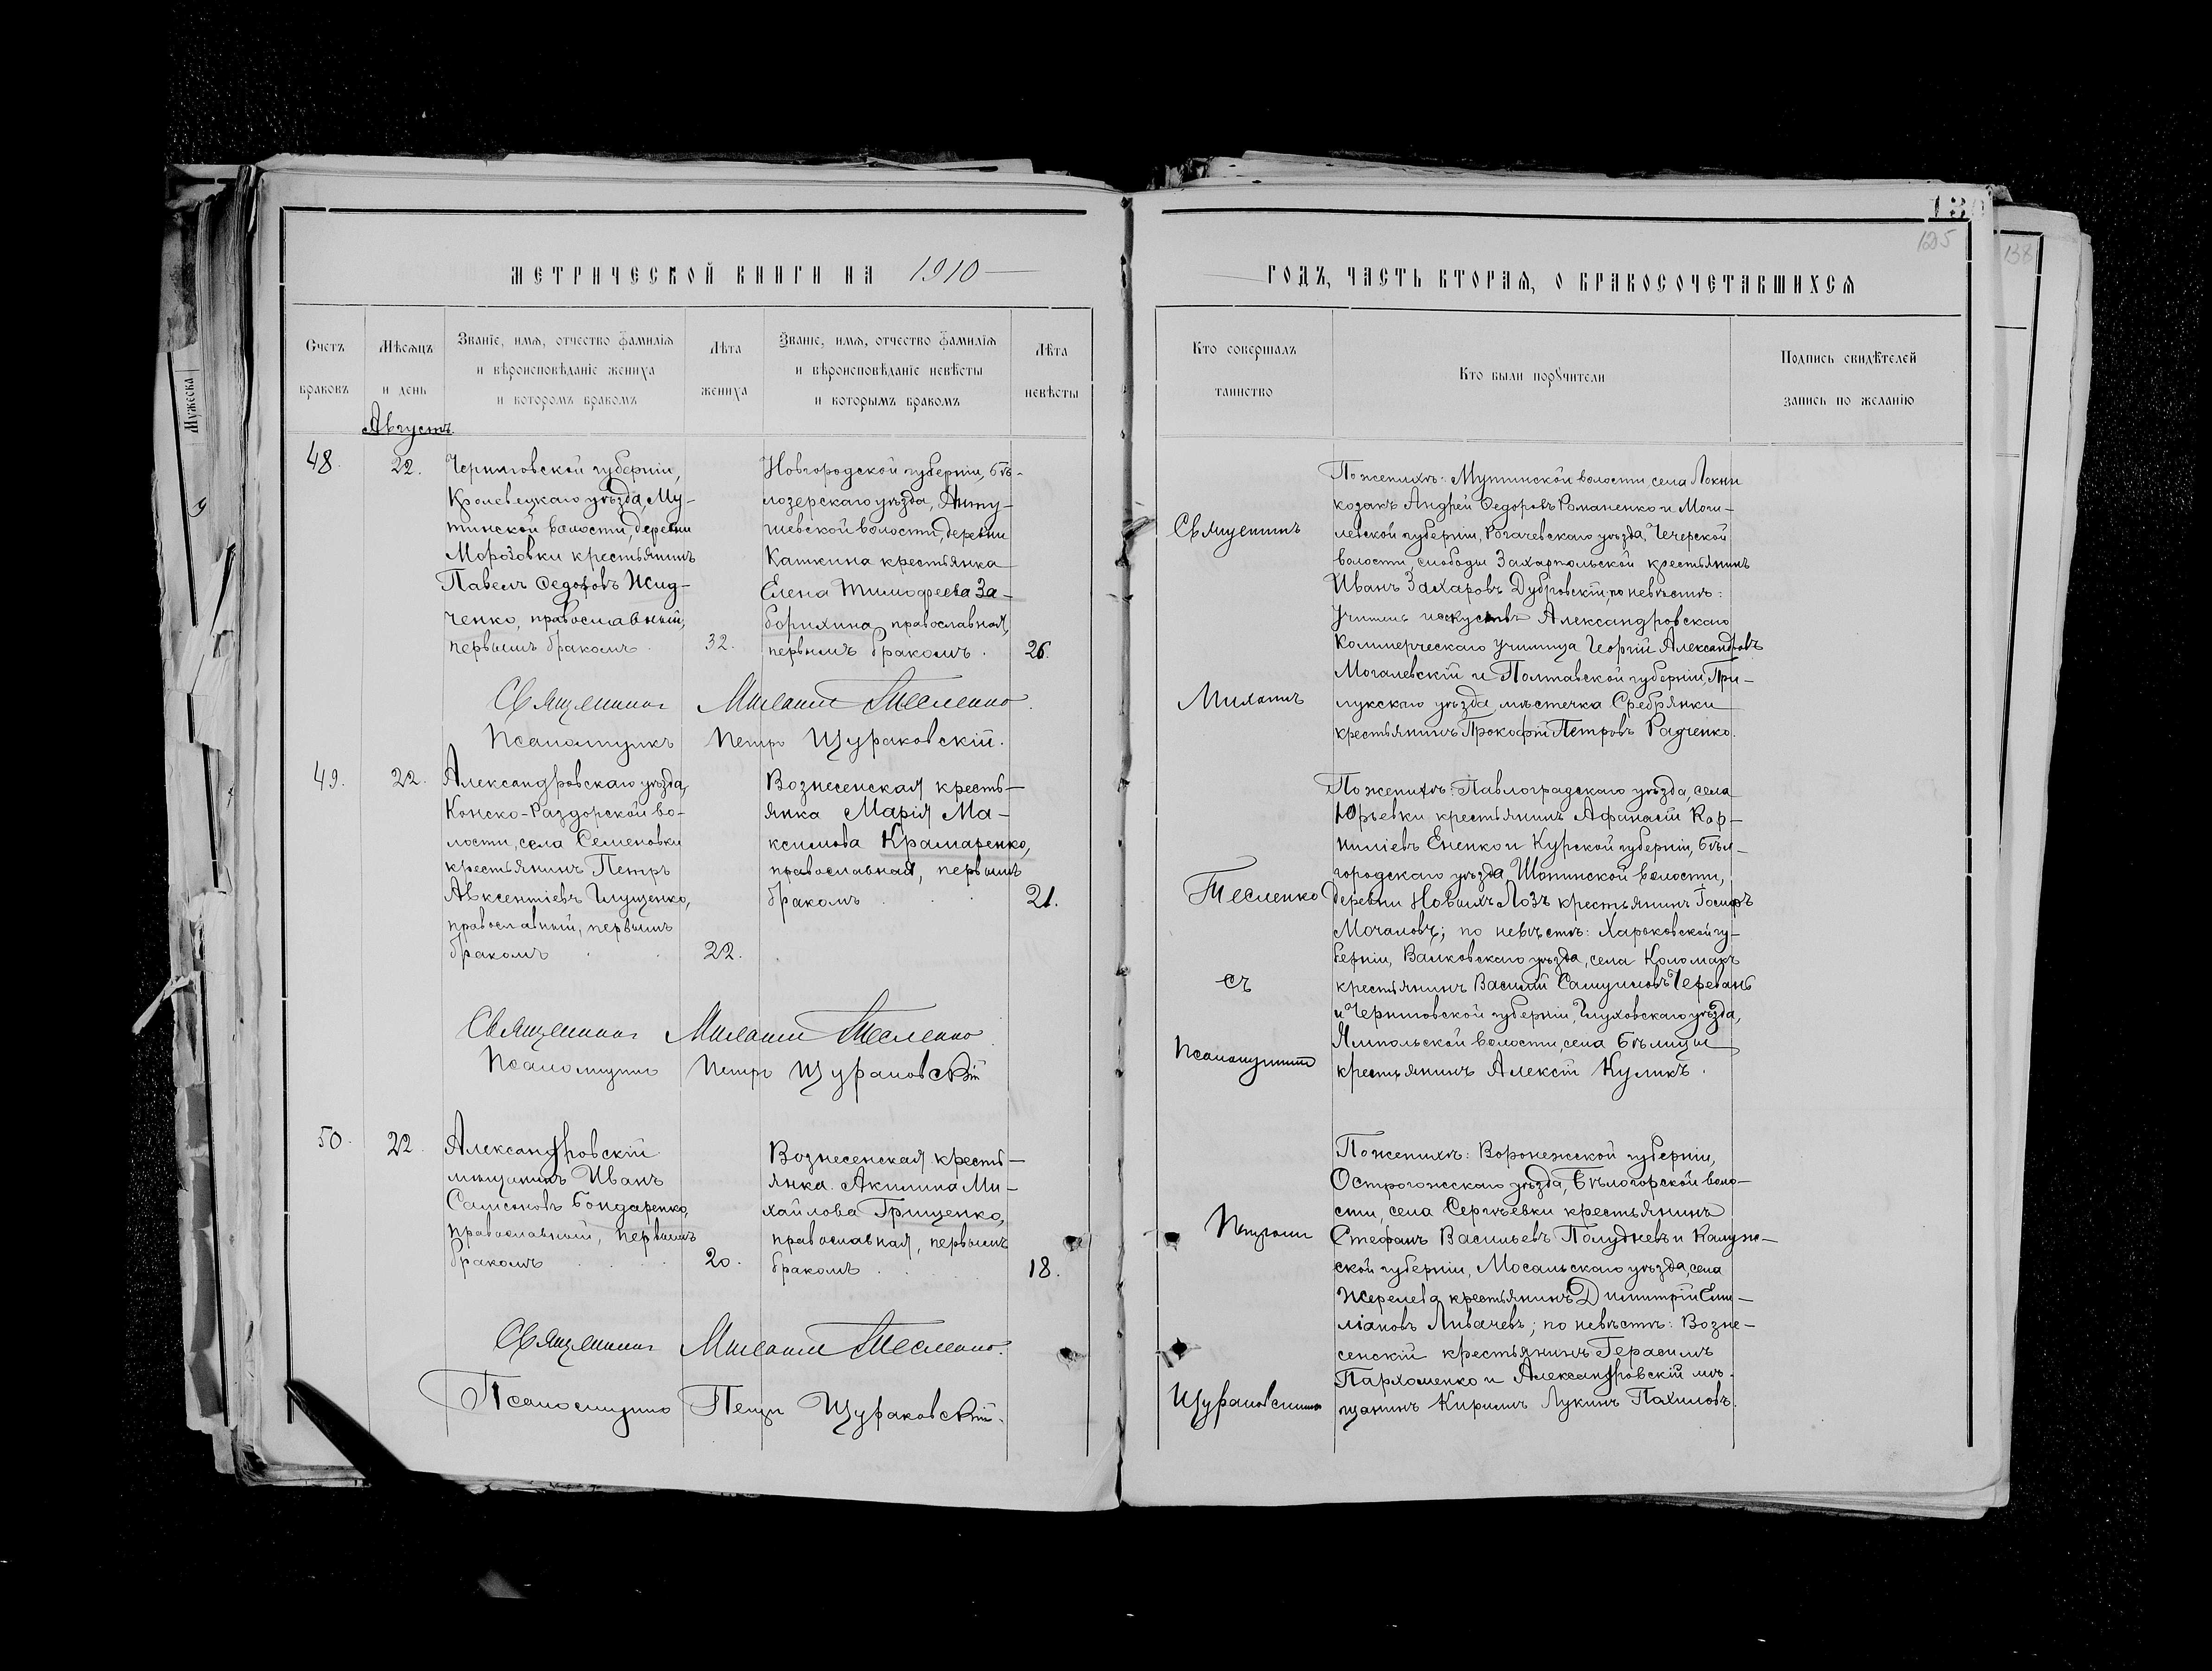 МЕТРИЧЕСКОЙ КНИГИ НА 1910
Счетъ браковъ
Мѣсяцъ и день
Званіе, имя, отчество фамилія
и вѣроисповѣданіе жениха
и которомъ бракомъ
Лѣта жениха
Званіе, имя, отчество фамилія
и вѣроисповѣданіе невѣсты
и которымъ бракомъ
Лѣта невѣсты
Августъ.
48.
22.
Черниговской губерніи,
Кролевецкаго уѣзда, Му-
тинской волости, деревни
Морозовки крестьянинъ
Павелъ Ѳедоровъ Жид-
ченко, православный,
первымъ бракомъ.
32.
Новгородской губерніи, Бѣ-
лозерскаго уѣзда, Анту-
шевской волости, деревни
Каткина крестьянка
Елена Тимофеева За-
борихина православная,
первымъ бракомъ.
26.
Священникъ Михаилъ Тесленко.
Псаломщикъ Петръ Щураковскій.
49.
22.
Александровскаго уѣзда,
Конско-Раздорской во-
лости, села Семеновки
крестьянинъ Петръ
Авксентіевъ Глущенко,
православный, первымъ
бракомъ
22.
Вознесенская кресть-
янка Марія Ма-
ксимова Крамаренко,
православная, первымъ
бракомъ
21.
Священникъ Михаилъ Тесленко.
Псаломщикъ Петръ Щураковскій
50.
22.
Александровскій
мѣщанинъ Иванъ
Самсоновъ Бондаренко,
православный, первымъ
бракомъ
20.
Вознесенская кресть-
янка Акилина Ми-
хайлова Грищенко,
православная, первымъ
бракомъ
18.
Священникъ Михаилъ Тесленко.
Псаломщикъ Петръ Щураковскій.
Мужеска
ГОДЪ, ЧАСТЬ ВТОРАЯ, О БРАКОСОЧЕТАВШИХСЯ
138
Кто совершалъ
таинство
Кто были порꙋчители
Подпись свидѣтелей
запись по желанію
Священникъ
Михаилъ
Тесленко
съ
Псаломщикомъ
Петромъ
Щураковскимъ
По женихѣ: Мутинской волости села Локни
козакъ Андрей Ѳедоровъ Романенко и Моги-
левской губерніи, Рогачевскаго уѣзда, Чечерской
волости, слободы Захарпольской крестьянинъ
Иванъ Захаровъ Дубровскій; по невѣстѣ:
Учитель искуствъ Александровскаго
Коммерческаго училища Георгій Александровъ
Могалевскій и Полтавской губерніи, При-
лукскаго уѣзда, мѣстечка Сребрянки
крестьянинъ Прокофій Петровъ Радченко.
По женихѣ: Павлоградскаго уѣзда, села
Юрьевки крестьянинъ Афанасій Кор-
ниліевъ Ененко и Курской губерніи, Бѣл-
городскаго уѣзда, Шопинской волости,
деревни Новыхъ Лозъ крестьянинъ Іосифъ
Мочаловъ; по невѣстѣ: Харьковской гу-
берніи, Валковскаго уѣзда, села Коломакъ
крестьянинъ Василій Самуиловъ Черевань
и Черниговской губерніи, Глуховскаго уѣзда,
Ямпольской волости, села Бѣлицы
крестьянинъ Алексій Куликъ.
По женихѣ: Воронежской губерніи,
Острогожскаго уѣзда, Бѣлогорской воло-
сти, села Сергѣевки крестьянинъ
Стефанъ Васильевъ Полудневъ и Калуж-
ской губерніи, Мосальскаго уѣзда, села
Жерелева крестьянинъ Димитрій Еми-
ліановъ Ливачевъ; по невѣстѣ: Возне-
сенскій крестьянинъ Герасимъ
Пархоменко и Александровскій мѣ-
щанинъ Кириллъ Лукинъ Пахиловъ.